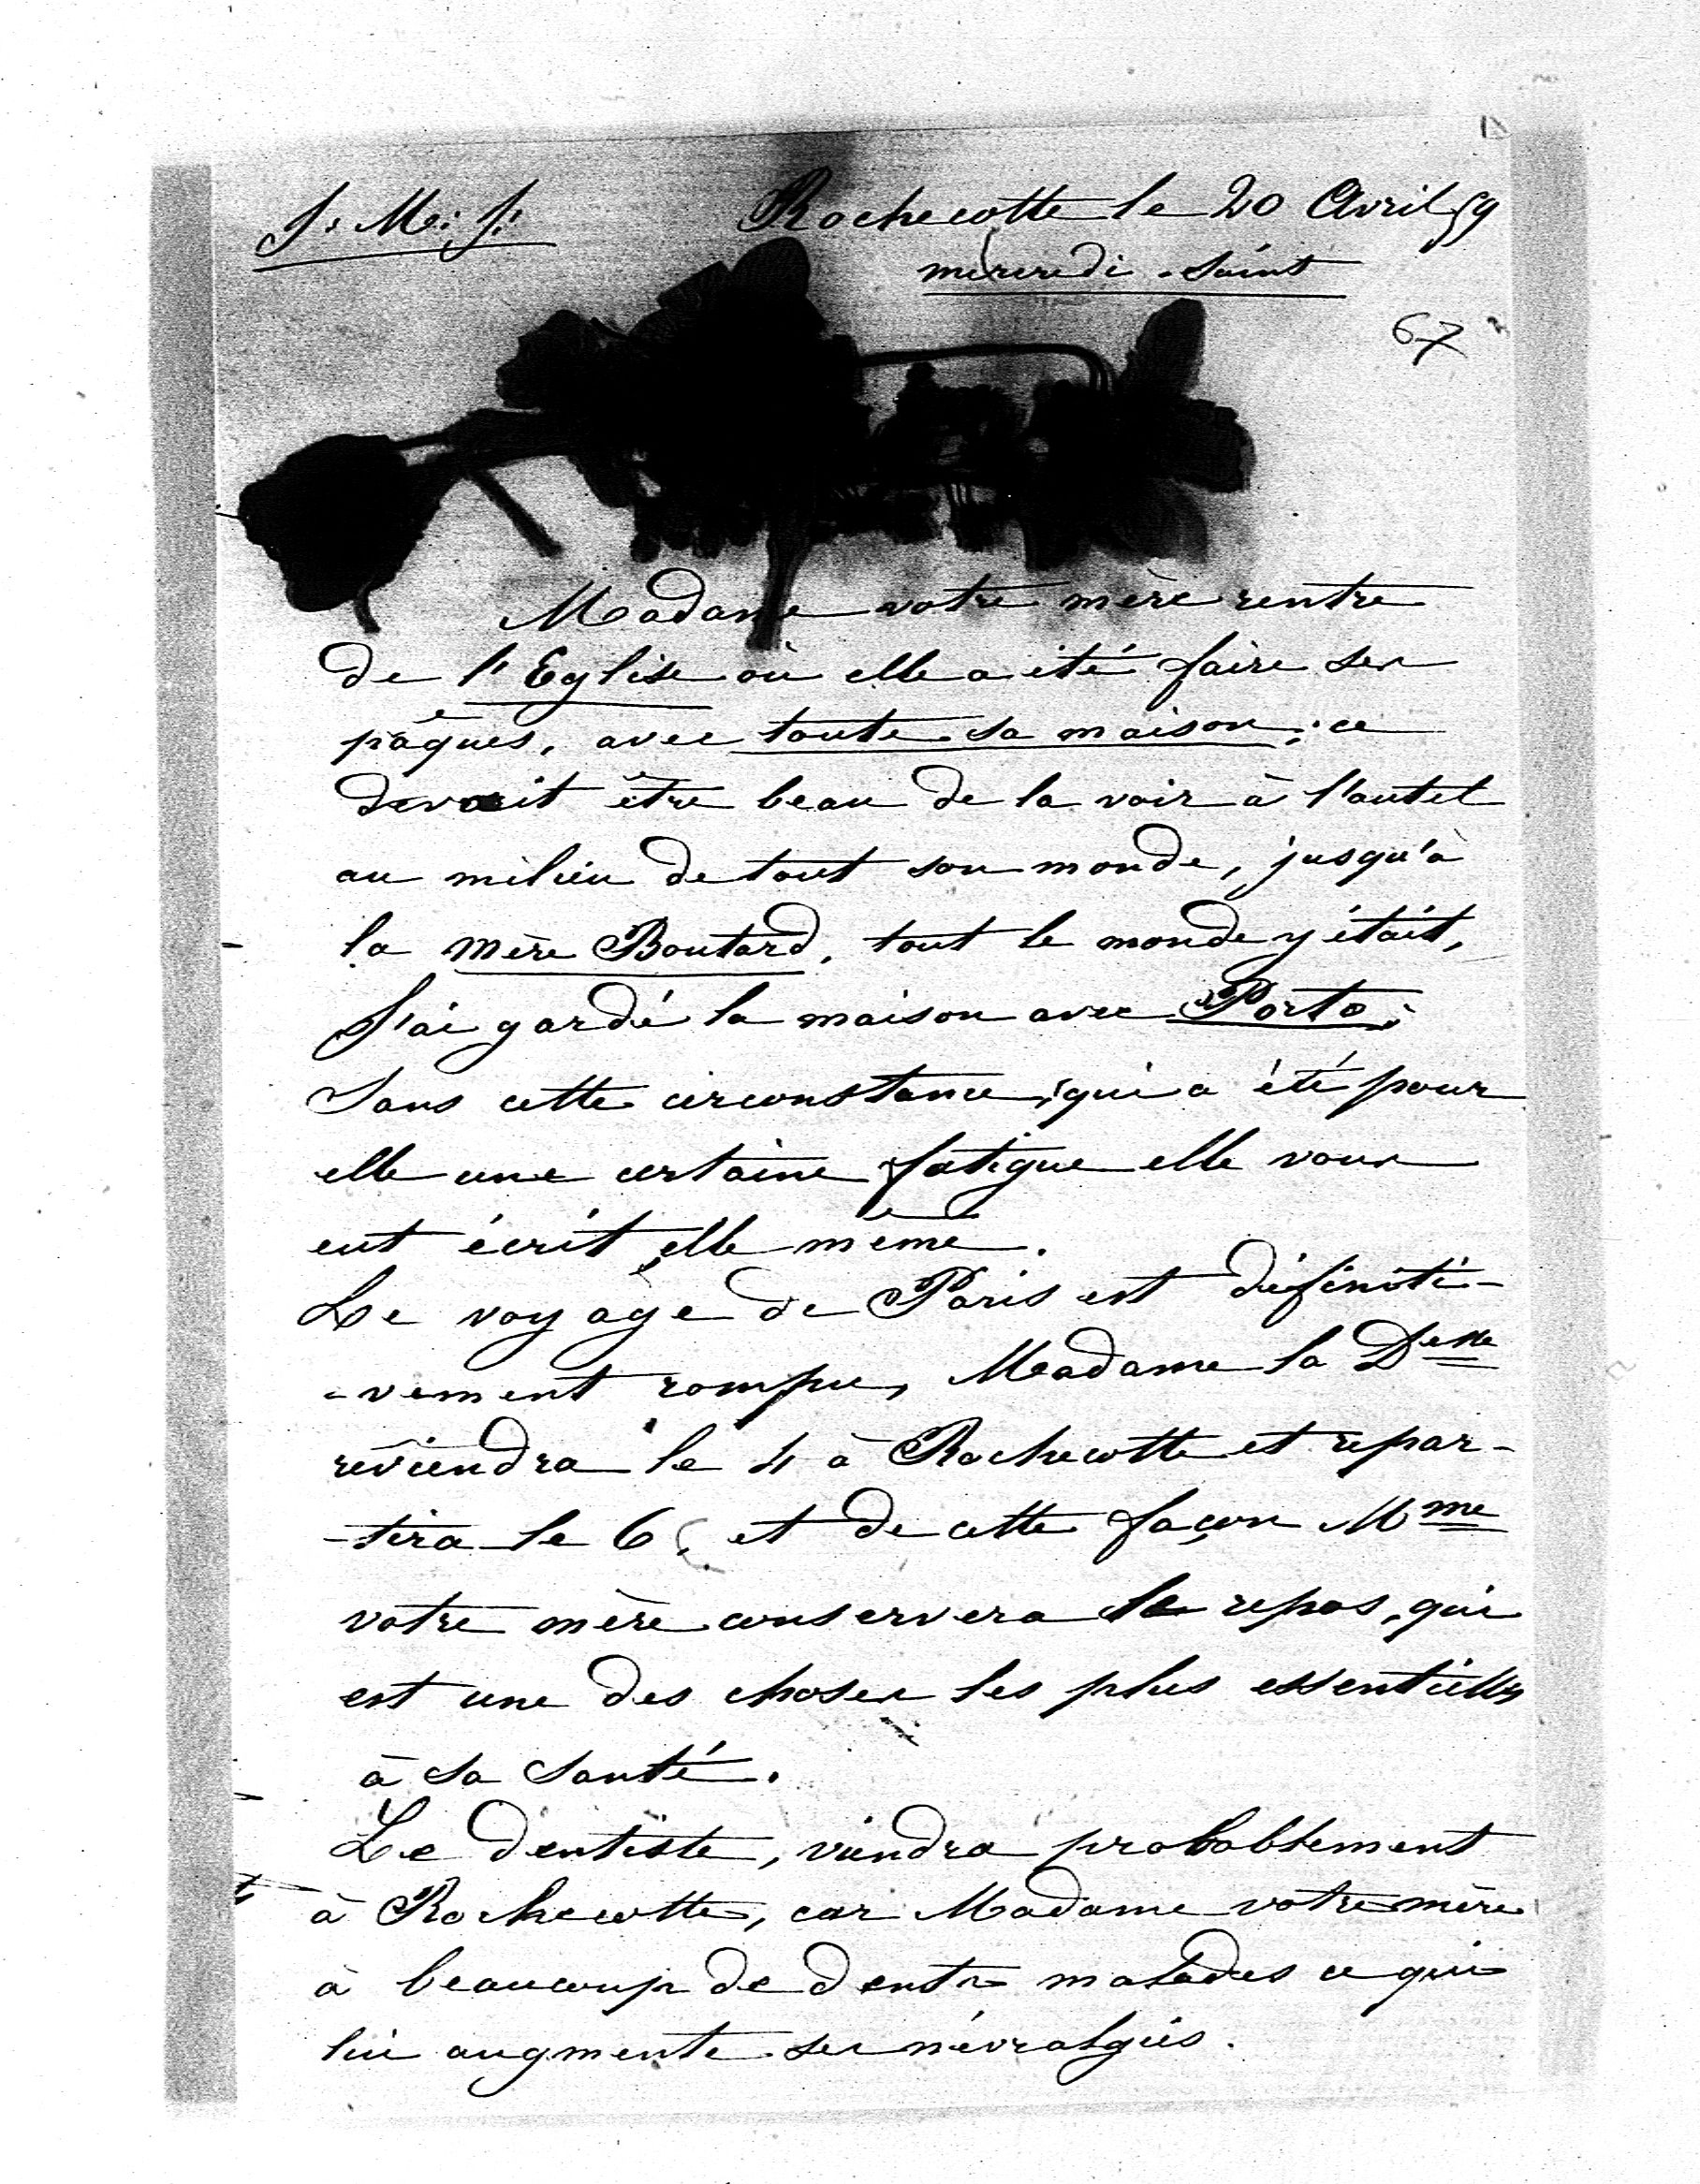 J. M. J. Rochecotte le 20 Avril 59
mercredi-Saint
67
Madame votre mère rentre
de l'Eglise où elle a été faire ses
pâques, avec toute sa maison; ce
devait être beau de la voir à l'autel
au milieu de tout son monde, jusqu'à
la mère Boutard, tout le monde y était,
J'ai gardé la maison avec Porto;
Sans cette circonstance, qui a été pour
elle une certaine fatigue elle vous
eut écrit elle même.
Le voyage de Paris est définiti-
-vement rompu, Madame la Desse
reviendra le 4 à Rochecotte et repar-
-tira le 6, et de cette façon Mme
votre mère conservera le repos, qui
est une des choses les plus essentielles
à sa santé.
Le dentiste, viendra probablement
à Rochecotte, car Madame votre mère
à beaucoup de dents malades ce qui
lui augmente ses névralgies.